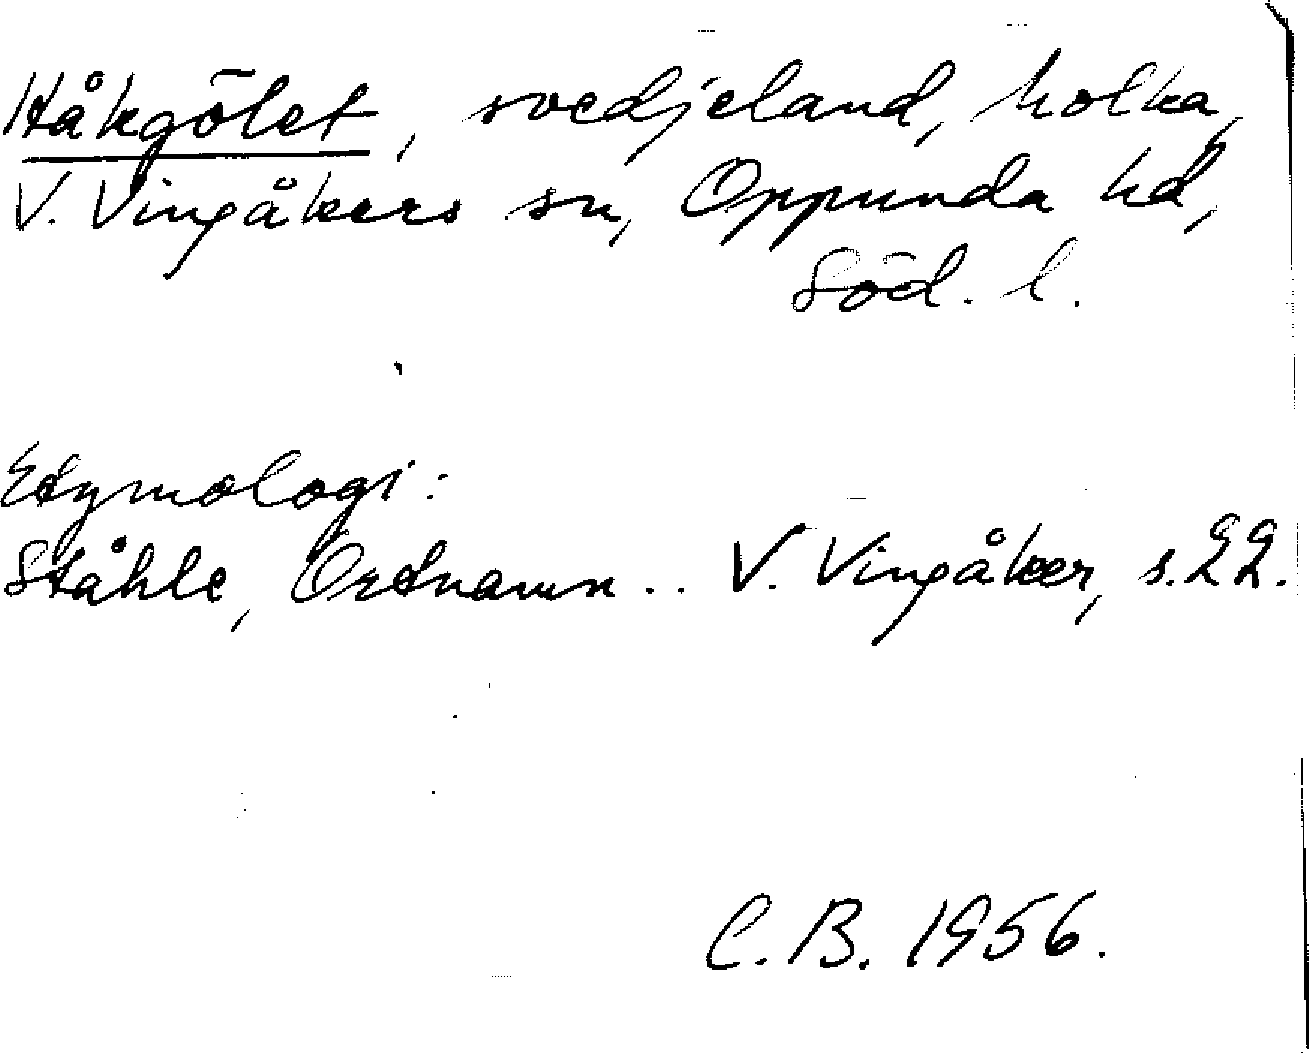 Håkgölet, svedjeland, holka,
V. Vingåkers sn, Oppunda hd,
Söd. l.
Etymologi:
Ståhle, Ortnamn.. V. Vingåker, s. 22.
C. B. 1956.